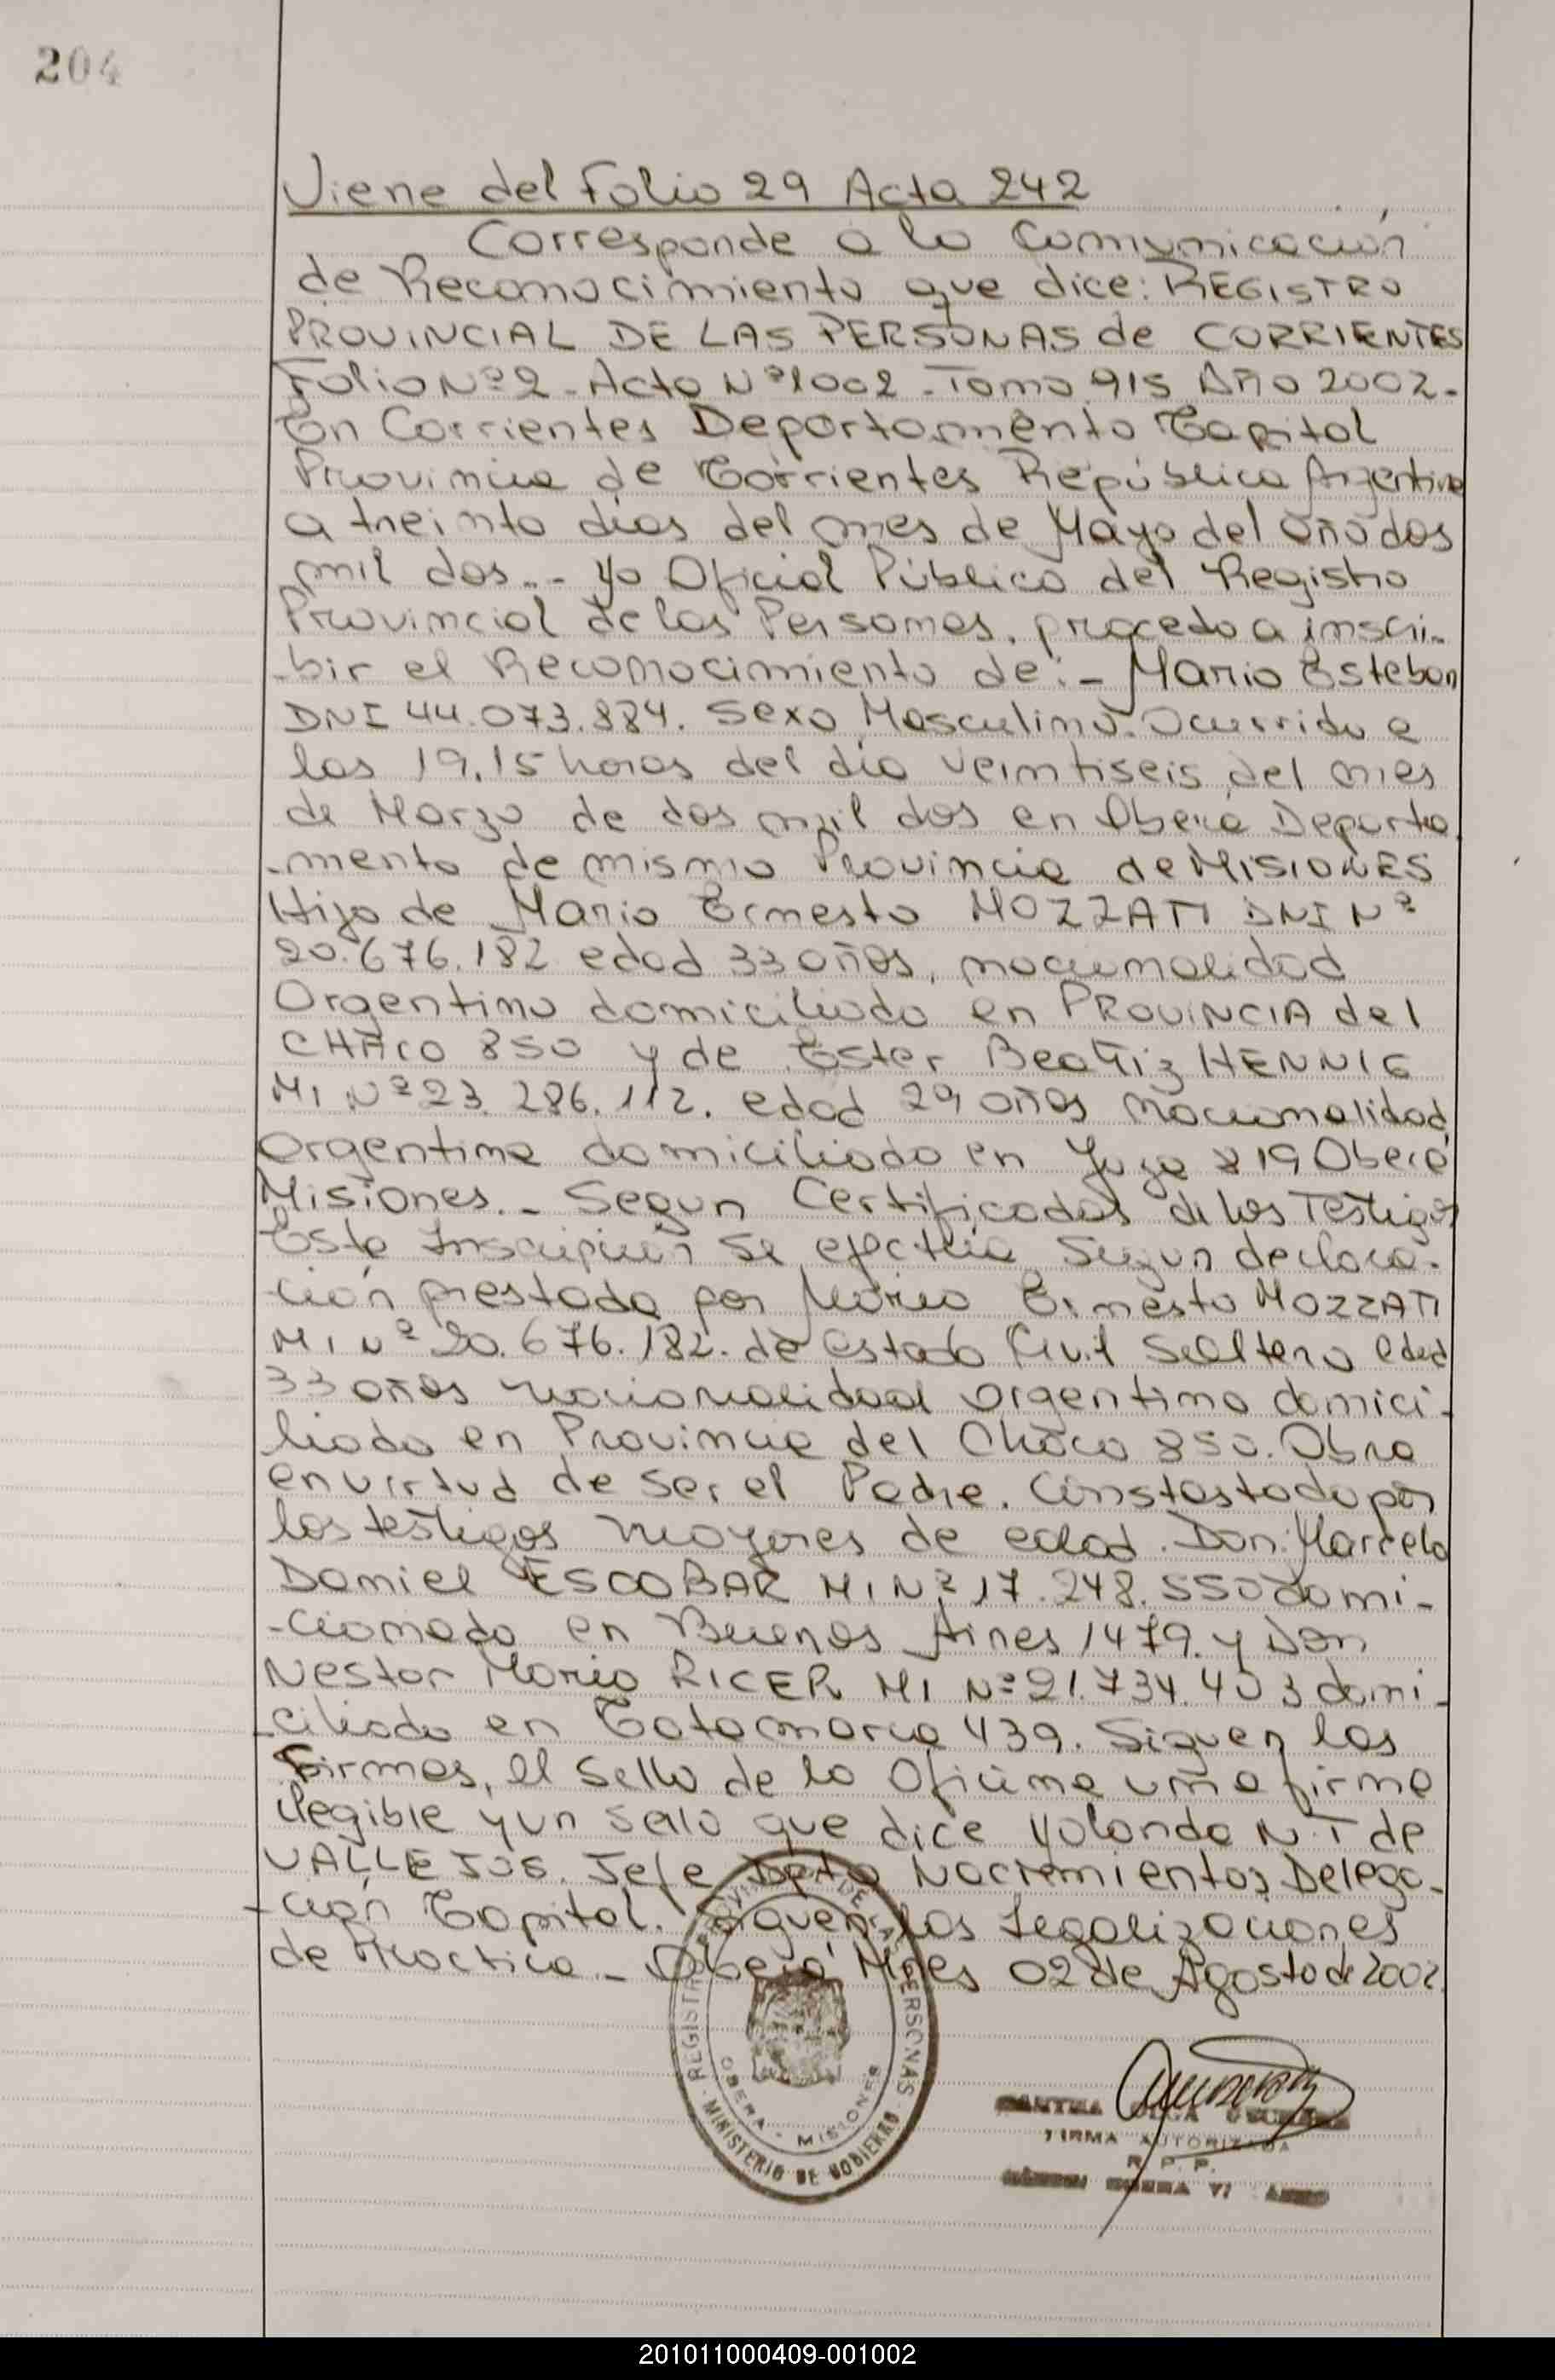 204
Viene del Folio 29 Acta 242
Corresponde a la Comunicación
de Reconocimiento que dice: REGISTRO
PROVINCIAL DE LAS PERSONAS de CORRIENTES
Folio Nº 2 - Acta Nº 1002 - Tomo 915 Año 2002.-
En Corrientes Departamento Capital
Provincia de Corrientes República Argentina
a treinta días del mes de Mayo del año dos
mil dos.- Yo Oficial Público del Registro
Provincial de las Personas, procedo a inscri-
-bir el Reconocimiento de:- Mario Esteban
DNI 44.073.884. Sexo Masculino. Ocurrido a
las 19.15 horas del día veintiseis del mes
de Marzo de dos mil dos en Oberá Departa
-mento de mismo Provincia de MISIONES
Hijo de Mario Ernesto MOZZATI DNI Nº
20.676.182 edad 33 años, nacionalidad
Argentino domiciliado en PROVINCIA del
CHACO 850 y de Ester Beatriz HENNIG
MI Nº 23.286.112. edad 29 años nacionalidad
Argentina domiciliada en 819 Oberá
Misiones.- Segun Certificados de los Testigos
Esta Inscripción se efectúa Segun declara-
-ción prestada por Mario Ernesto MOZZATI
MI Nº 20.676.182. de estado Civil Soltero edad
33 años nacionalidad argentino domici-
liado en Provincia del Chaco 850. Obra
en virtud de ser el Padre. Constastado por
los testigos mayores de edad. Don: Marcelo
Daniel ESCOBAR MI Nº 17.248.550 domi-
-cionado en Buenos Aires 1479. y Don
Nestor Mario RICER MI Nº 21.734.403 domi-
-ciliado en Catamarca 439. Siguen las
Firmas, el Sello de la Oficina una firma
ilegible y un sello que dice Yolanda N. T de
VALLEJOS. Jefe Dpto Nacimientos Delega-
-ción Capital. Siguen las Legalizaciones
de Practica.- Oberá Mnes 02 de Agosto de 2002.
REGISTRO PROVINCIAL DE LAS PERSONAS
OBERA - MISIONES
MINISTERIO DE GOBIERNO
OLGA
FIRMA AUTORIZADA
R. P. P.
201011000409-001002